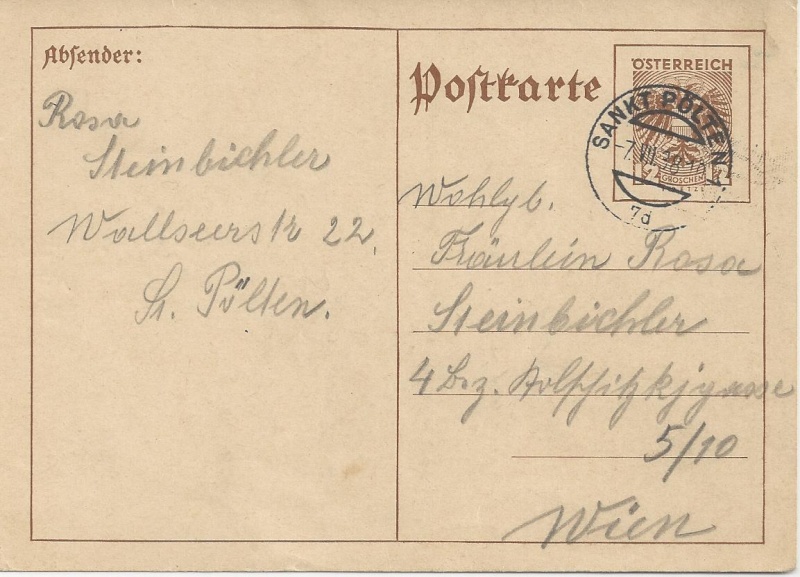 Absender:
Rosa
Steinbichler
Wallseerstr 22,
St. Pölten.
Postkarte
ÖSTERREICH
GROSCHEN
SANKT PÖLTEN
-7.III.38
7d
Wohlgb.
Fräulein Rosa
Steinbichler
4 Bez. Kolschitzkjgasse
5/10
Wien